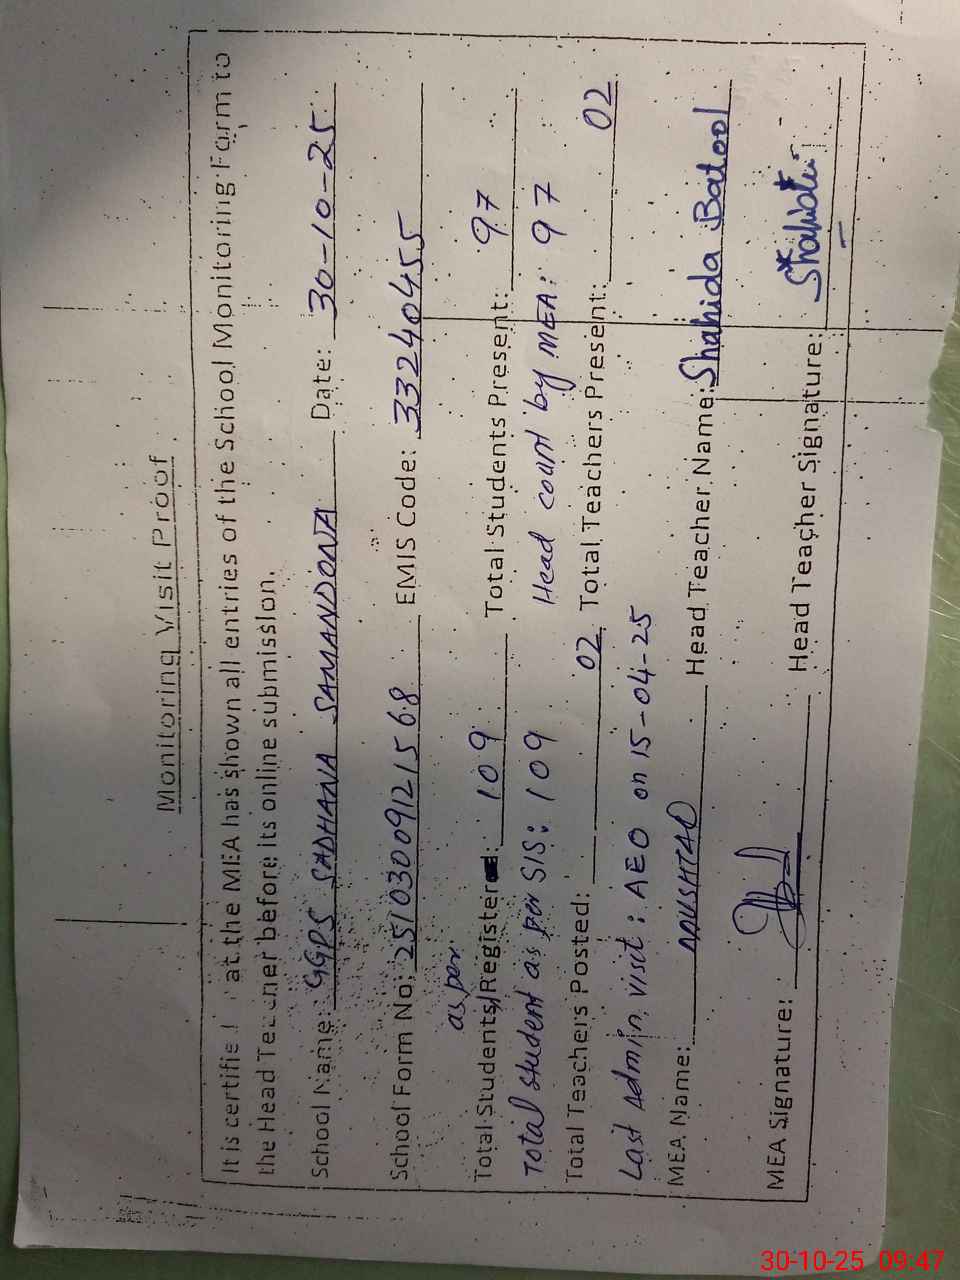 Monitoring Visit Proof
It is certifie at the MEA has shown all entries of the School Monitoring Form to
the Head Teacher before its online submission.
School Name: GGPS SADHANA SAMANDONA Date: 30-10-25
School Form No: 25103009121568 EMIS Code: 33240455
as per
Total Students Register: 109 Total Students Present: 97
Total student as per SIS: 109 Head count by MEA: 97
Total Teachers Posted: 02 Total Teachers Present: 02
Last Admin, visit: AEO on 15-04-25
MEA Name: MUSHTAQ Head Teacher Name: Shahida Batool
MEA Signature: Head Teacher Signature:
30-10-25 09:47